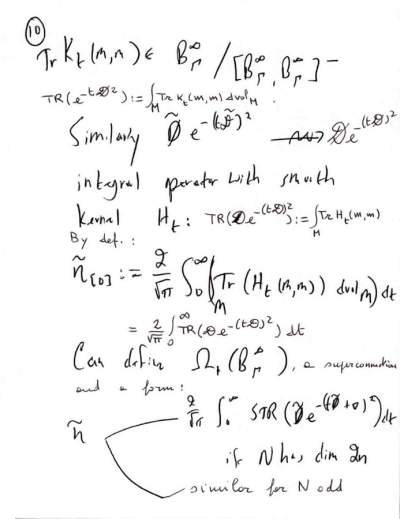 10
Tr K_t(m,m) ∈ B_Γ^∞ / [B_Γ^∞, B_Γ^∞]‾
TR(e^{-tD²}) := ∫_M Tr K_t(m,m) dvol_M.
Similarly D̃ e^{-(tD̃)²} De^{-(tD)²}
integral operator with smooth
kernel H_t: TR(De^{-(tD)²}) := ∫_M Tr H_t(m,m)
By def.:
η̃_[0] := 2/√π ∫_0^∞ ∫_M Tr (H_t(m,m)) dvol_M) dt
= 2/√π ∫_0^∞ TR(De^{-(tD)²}) dt
Can define Ω_*(B_Γ^∞), a superconnection
and a form:
2/√π ∫_0^∞ STR(D̃e^{-(tD̃+∇)²}) dt
η̃
if N has dim 2n
similar for N odd